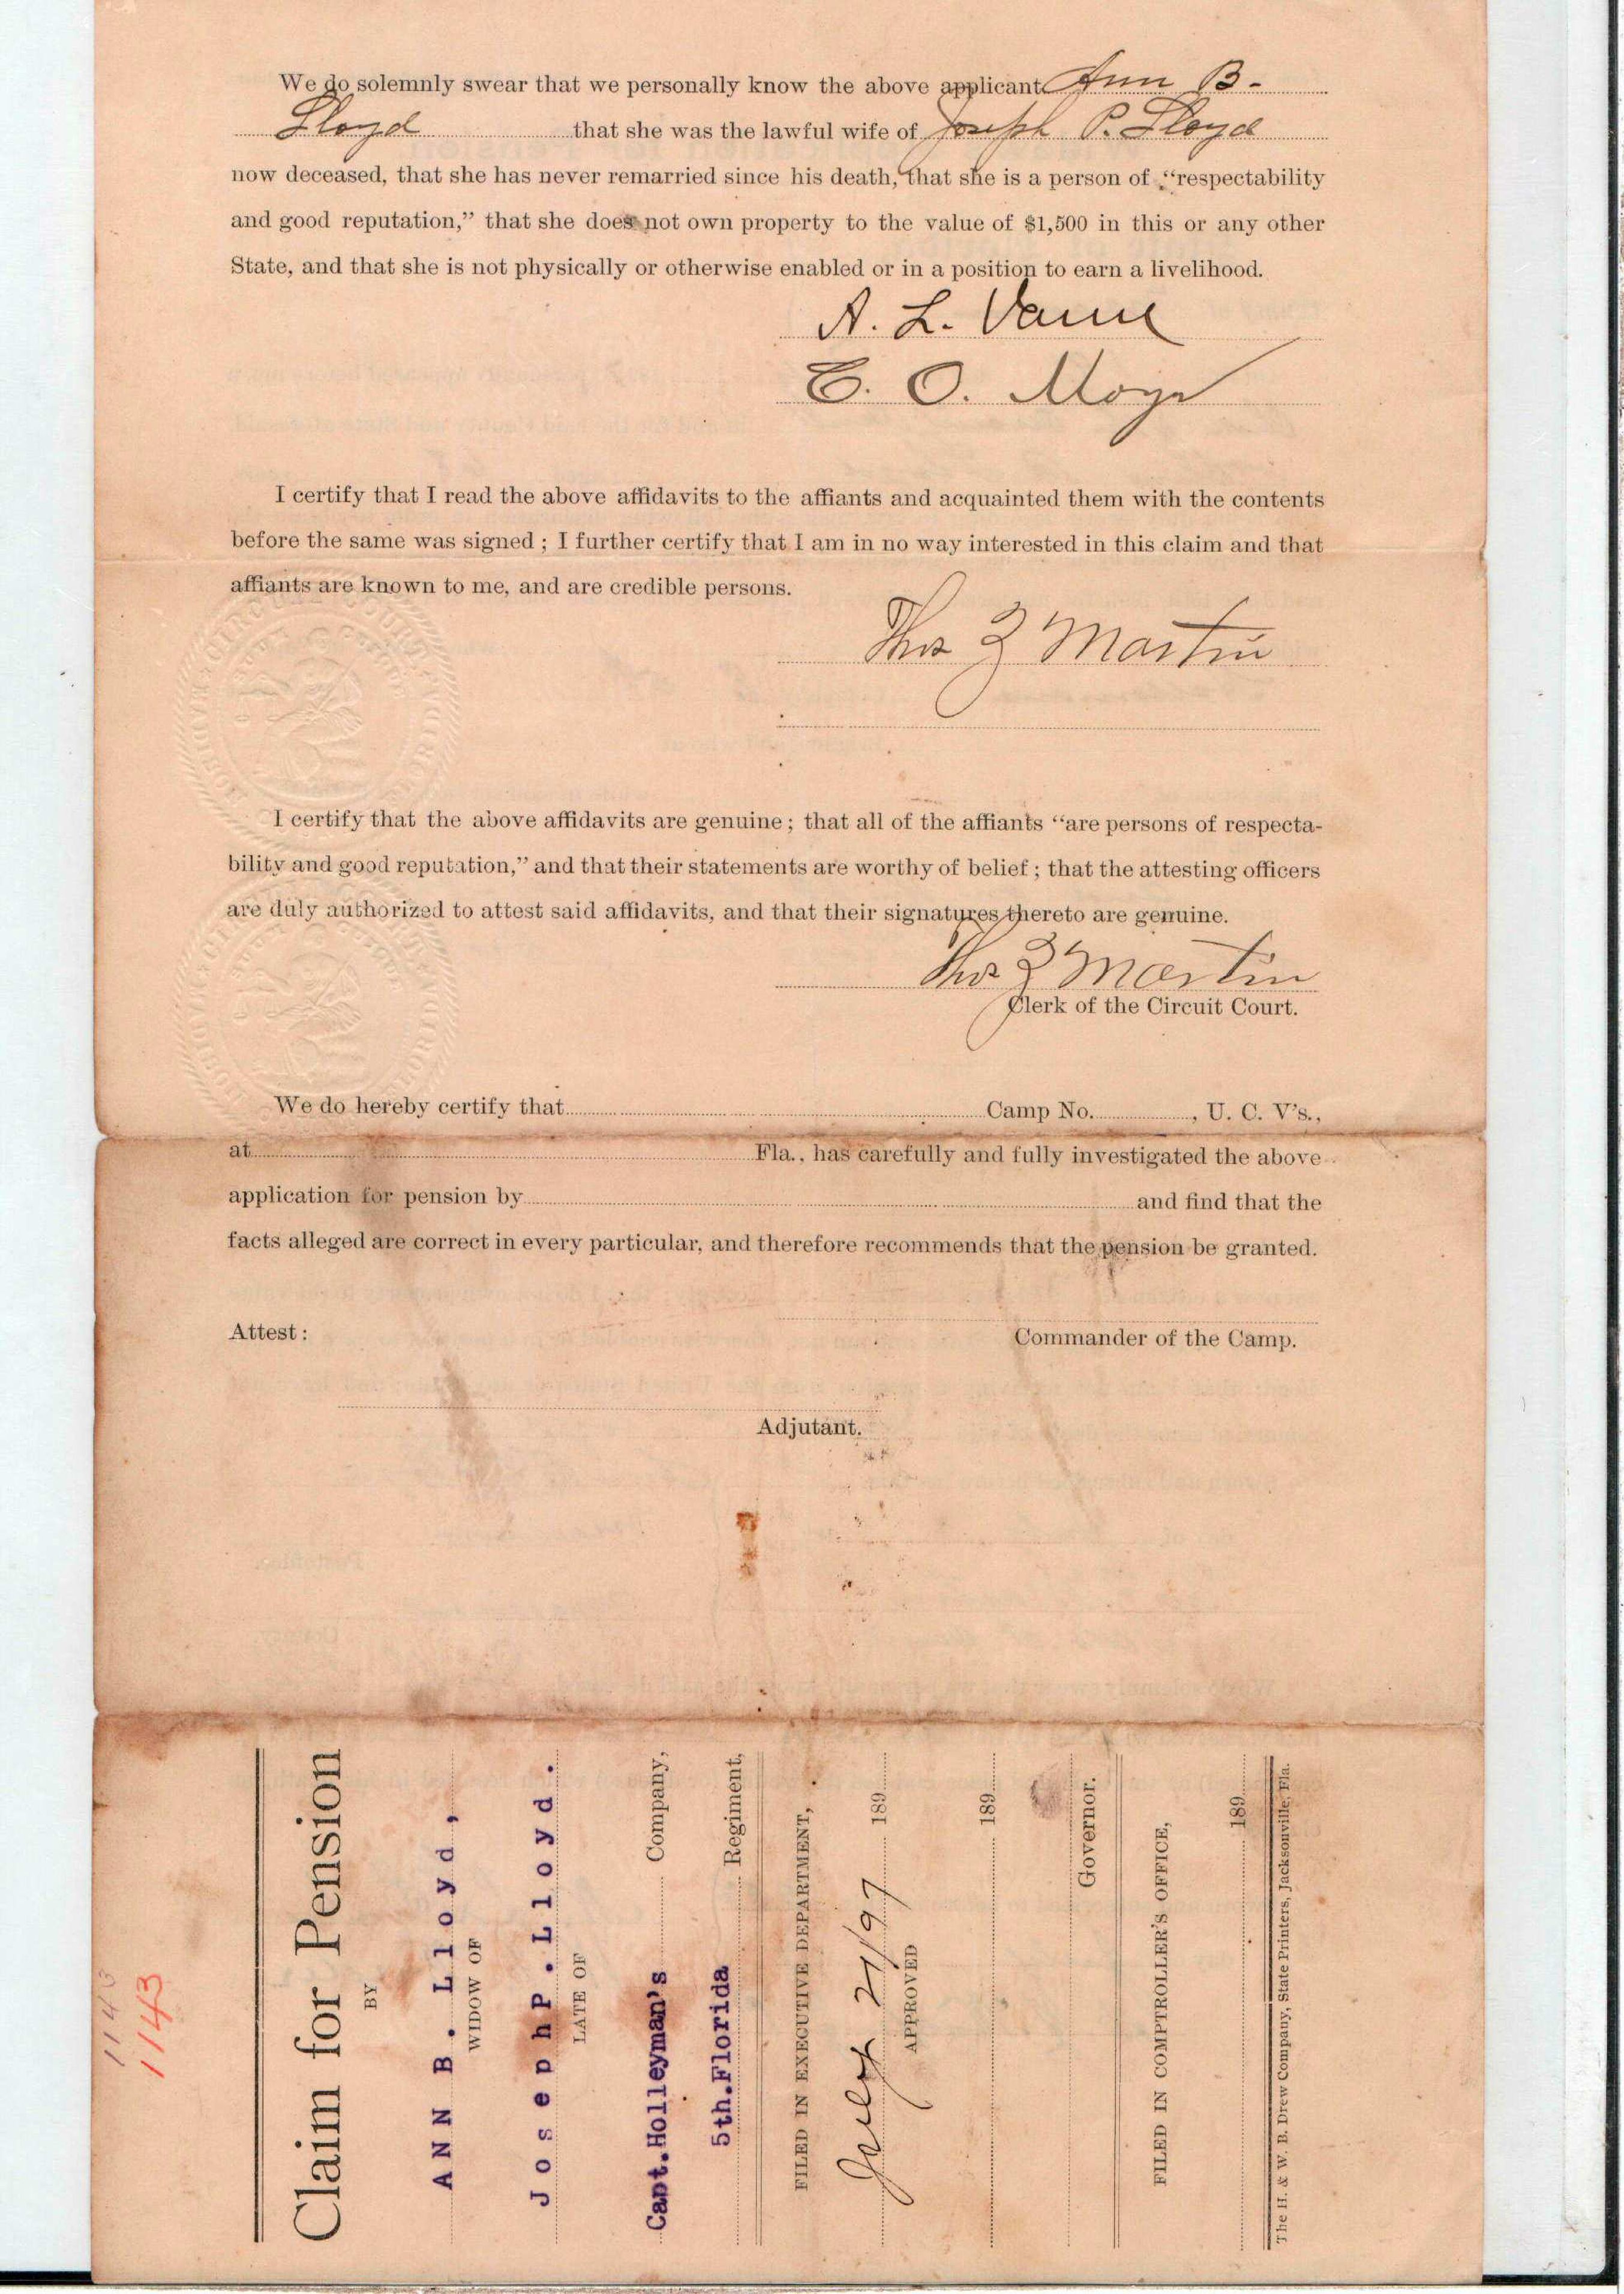 We do solemnly swear that we personally know the above applicant Ann B.
Lloyd that she was the lawful wife of Joseph P. Lloyd
now deceased, that she has never remarried since his death, that she is a person of "respectability
and good reputation," that she does not own property to the value of $1,500 in this or any other
State, and that she is not physically or otherwise enabled or in a position to earn a livelihood.
A. L. Vann
C. O. Moye
I certify that I read the above affidavits to the affiants and acquainted them with the contents
before the same was signed; I further certify that I am in no way interested in this claim and that
affiants are known to me, and are credible persons.
Thos Z Martin
I certify that the above affidavits are genuine; that all of the affiants "are persons of respecta-
bility and good reputation," and that their statements are worthy of belief; that the attesting officers
are duly authorized to attest said affidavits, and that their signatures thereto are genuine.
Thos Z Martin
Clerk of the Circuit Court.
We do hereby certify that Camp No. , U. C. V's.,
at Fla., has carefully and fully investigated the above
application for pension by and find that the
facts alleged are correct in every particular, and therefore recommends that the pension be granted.
Attest:
Commander of the Camp.
Adjutant.
1143
1143
Claim for Pension
BY
ANN B. Lloyd,
WIDOW OF
Joseph P. Lloyd.
LATE OF
Capt.Holleyman's Company,
5th.Florida Regiment,
FILED IN EXECUTIVE DEPARTMENT,
July 21/97 189
APPROVED
189
Governor.
FILED IN COMPTROLLER'S OFFICE,
189
The H. & W. B. Drew Company, State Printers, Jacksonville, Fla.